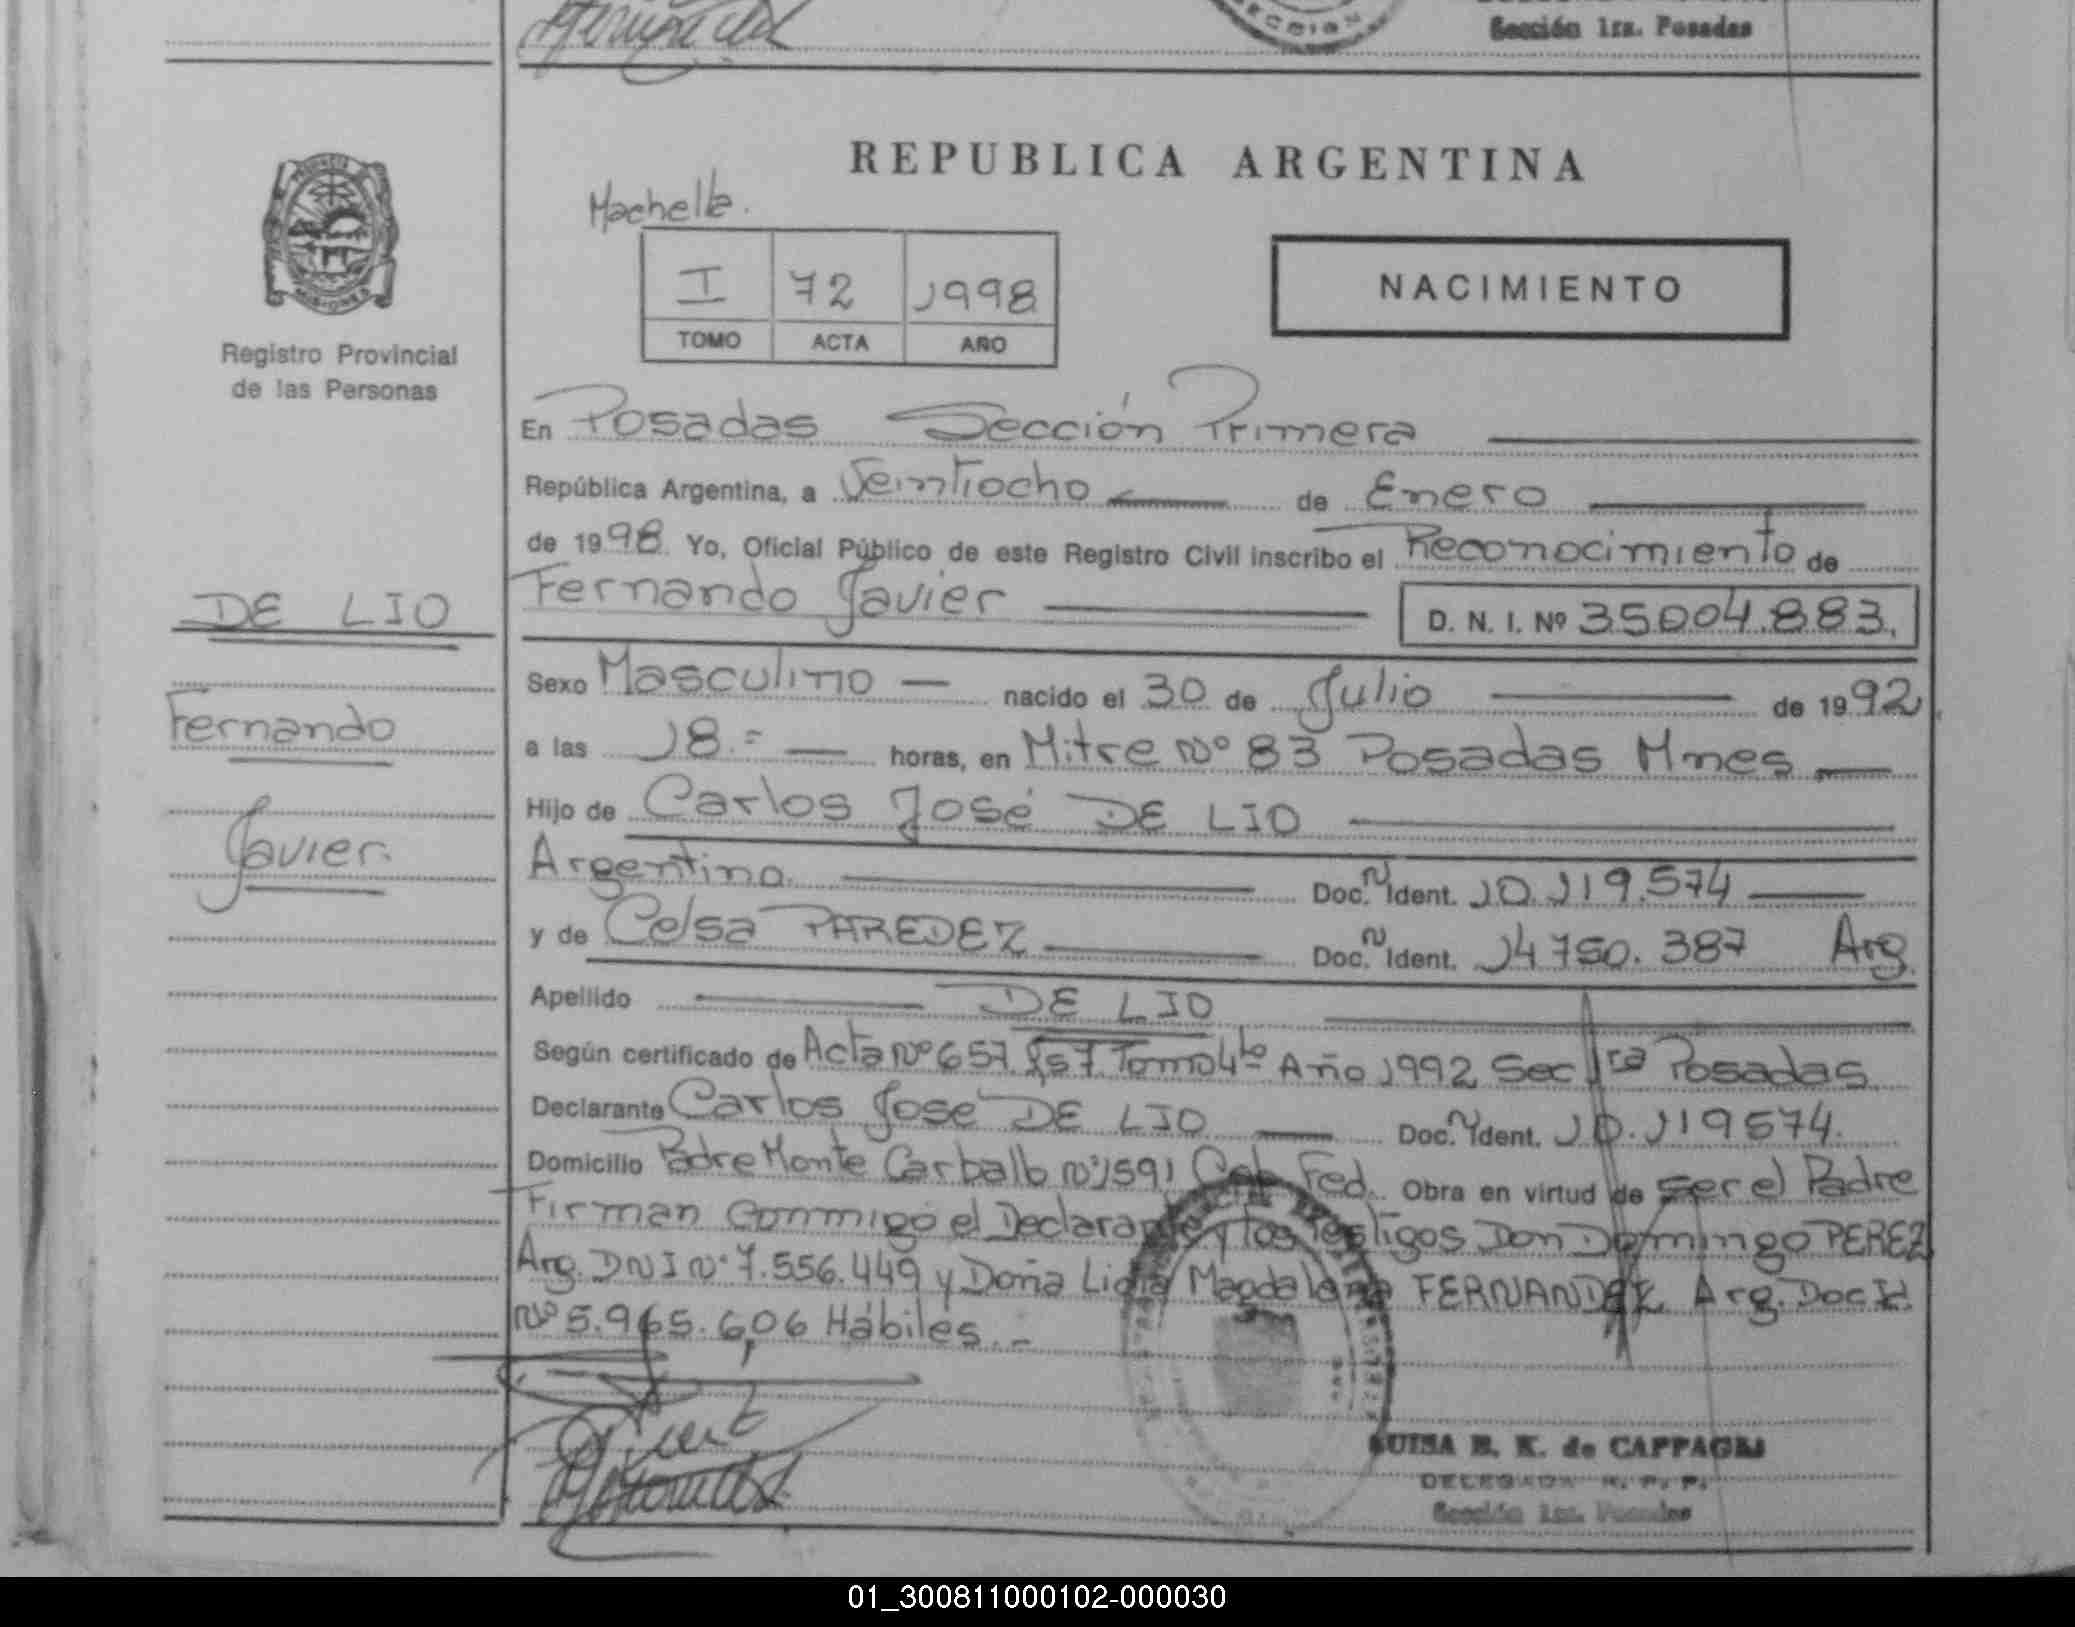 Sección 1ra. Posadas
REPUBLICA ARGENTINA
Machella.
I 72 1998
TOMO ACTA AÑO
NACIMIENTO
MISIONES
Registro Provincial
de las Personas
En Posadas Sección Primera
República Argentina, a Veintiocho de Enero
de 1998. Yo, Oficial Público de este Registro Civil inscribo el Reconocimiento de
Fernando Javier D. N. I. Nº 35004.883.
DE LIO
Fernando
Javier.
Sexo Masculino — nacido el 30 de Julio de 1992
a las 18.= — horas, en Mitre Nº 83 Posadas Mnes
Hijo de Carlos José DE LIO
Argentino Doc. N Ident. 10.119.574
y de Celsa PAREDEZ Doc. N Ident. 14750.387 Arg.
Apellido DE LIO
Según certificado de Acta Nº 657 Tomo 4to Año 1992 Sec 1ra Posadas
Declarante Carlos José DE LIO Doc. N Ident. 10.119574.
Domicilio Padre Monte Carballo Nº 1591 Fed. Obra en virtud de ser el Padre
Firman conmigo el Declarante y los Testigos Don Domingo PEREZ
Arg. DNI Nº 7.556.449 y Doña Lidia Magdalena FERNANDEZ Arg. Doc Id.
Nº 5.965.606 Hábiles.-
LUISA B. K. de CAPPAGLI
DELEGADA R. P. P.
Sección 1ra. Posadas
01_300811000102-000030